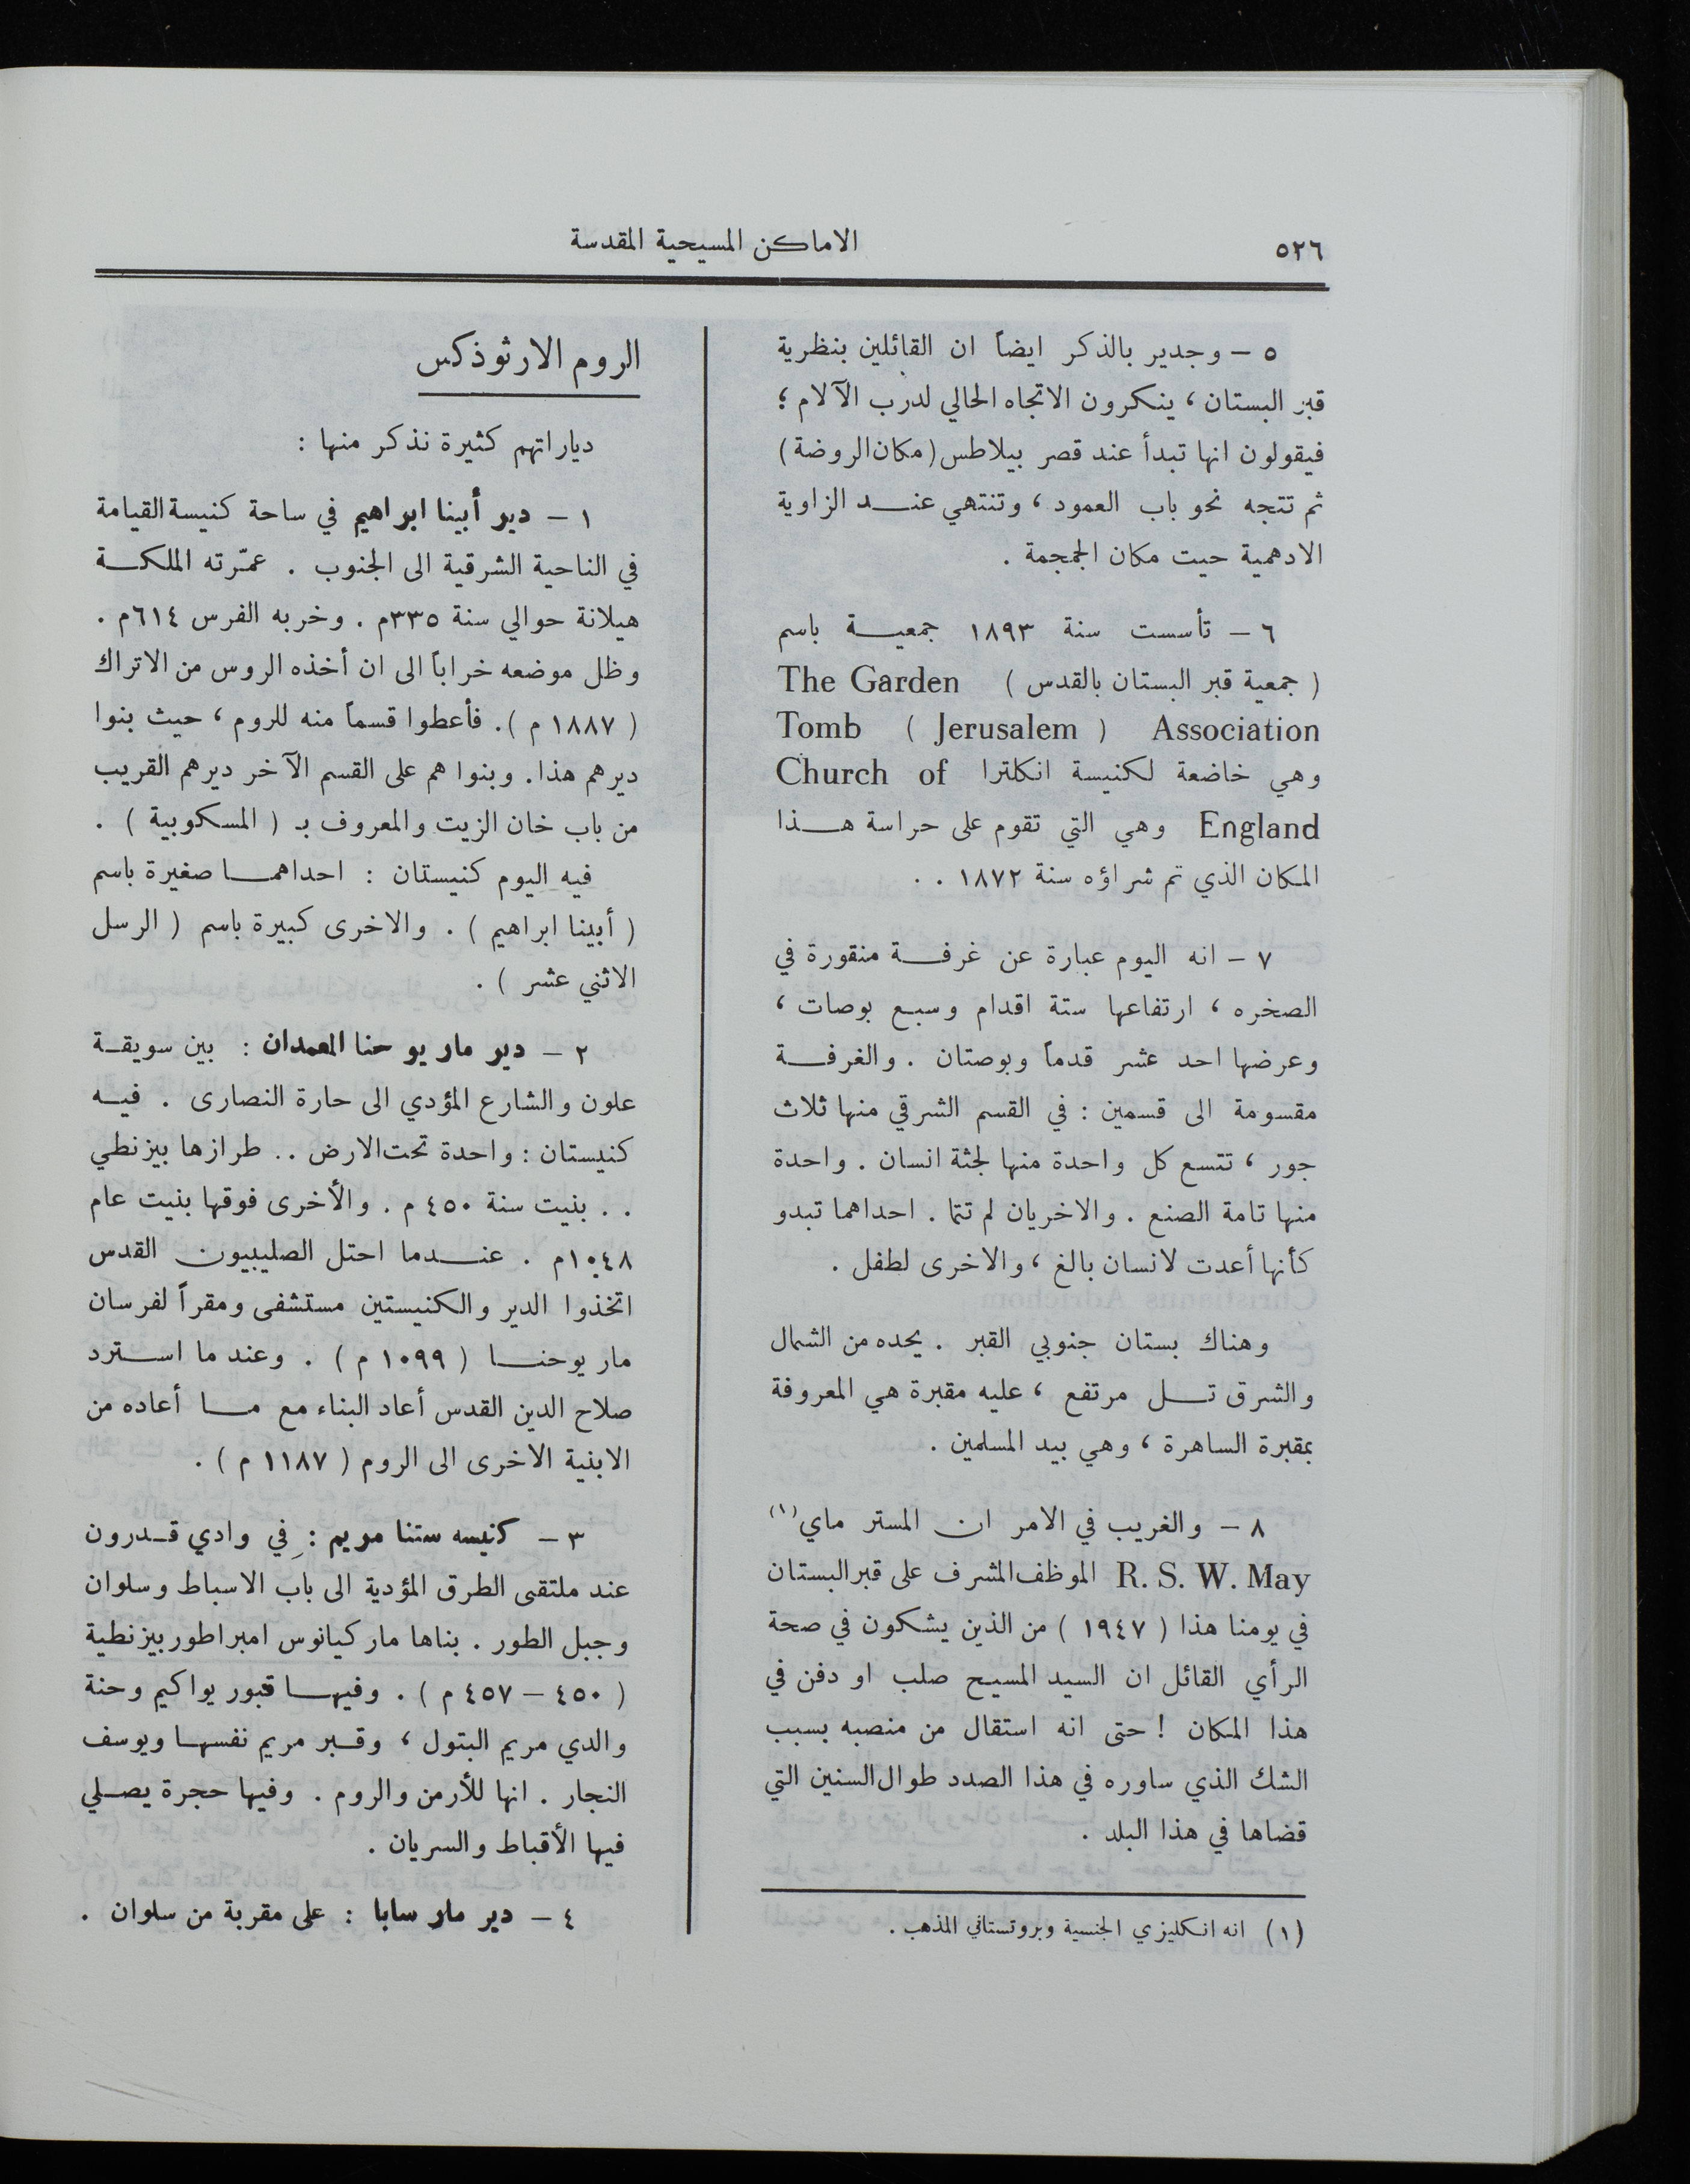 ٥٢٦
الاماكن المسيحية المقدسة
٥ – وجدير بالذكر ايضاً ان القائلين بنظرية
قبر البستان ، ينكرون الاتجاه الحالي لدرب الآلام ؛
فيقولون انها تبدأ عند قصر بيلاطس (مكان الروضة)
ثم تتجه نحو باب العمود ، وتنتهي عنـــد الزاوية
الادهمية حيت مكان الجمجمة .
٦ – تأسست سنة ١٨٩٣ جمعيــة باسم
( جمعية قبر البستان بالقدس ) The Garden
Tomb ( Jerusalem ) Association
وهي خاضعة لكنيسة انكلترا Church of
England وهي التي تقوم على حراسة هـــذا
المكان الذي تم شراؤه سنة ١٨٧٢ . .
٧ – انه اليوم عبارة عن غرفــة منقورة في
الصخره ، ارتفاعها ستة اقدام وسبع بوصات ،
وعرضها احد عشر قدماً وبوصتان . والغرفــة
مقسومة الى قسمين : في القسم الشرقي منها ثلاث
جور ، تتسع كل واحدة منها لجثة انسان . واحدة
منها تامة الصنع . والاخريان لم تتما . احداهما تبدو
كأنها أعدت لانسان بالغ ، والاخرى لطفل .
وهناك بستان جنوبي القبر . يحده من الشمال
والشرق تـــل مرتفع ، عليه مقبرة هي المعروفة
بمقبرة الساهرة ، وهي بيد المسلمين .
٨ – والغريب في الامر ان المستر ماي (١)
R. S. W. May الموظف المشرف على قبر البستان
في يومنا هذا ( ١٩٤٧ ) من الذين يشكون في صحة
الرأي القائل ان السيد المسيح صلب او دفن في
هذا المكان ! حتى انه استقال من منصبه بسبب
الشك الذي ساوره في هذا الصدد طوال السنين التي
قضاها في هذا البلد .
(١) انه انكليزي الجنسية وبروتستاني المذهب .
الروم الارثوذكس
دياراتهم كثيرة نذكر منها :
١ – دير أبينا ابراهيم في ساحة كنيسة القيامة
في الناحية الشرقية الى الجنوب . عمّرته الملكــة
هيلانة حوالي سنة ٣٣٥م . وخربه الفرس ٦١٤م .
وظل موضعه خراباً الى ان أخذه الروس من الاتراك
( ١٨٨٧ م ) . فأعطوا قسماً منه للروم ، حيث بنوا
ديرهم هذا . وبنوا هم على القسم الآخر ديرهم القريب
من باب خان الزيت والمعروف بـ ( المسكوبية ) .
فيه اليوم كنيستان : احداهمـــا صغيرة باسم
( أبينا ابراهيم ) . والاخرى كبيرة باسم ( الرسل
الاثني عشر ) .
٢ – دير مار يو حنا المعمدان : بين سويقــة
علون والشارع المؤدي الى حارة النصارى . فيــه
كنيستان : واحدة تحت الارض .. طرازها بيزنطي
. . بنيت سنة ٤٥٠ م . والأخرى فوقها بنيت عام
١٠٤٨م . عنـــدما احتل الصليبيون القدس
اتخذوا الدير والكنيستين مستشفى ومقراً لفرسان
مار يوحنـــا ( ١٠٩٩ م ) . وعند ما استرد
صلاح الدين القدس أعاد البناء مع مـــا أعاده من
الابنية الاخرى الى الروم ( ١١٨٧ م ) .
٣ – كنيسه ستنا مريم : في وادي قــدرون
عند ملتقى الطرق المؤدية الى باب الاسباط وسلوان
وجبل الطور . بناها مار كيانوس امبراطور بيزنطية
( ٤٥٠ – ٤٥٧ م ) . وفيهـــا قبور يواكيم وحنة
والدي مريم البتول ، وقــبر مريم نفسهــا ويوسف
النجار . انها للأرمن والروم . وفيها حجرة يصــلي
فيها الأقباط والسريان .
٤ – دير مار سابا : على مقربة من سلوان .